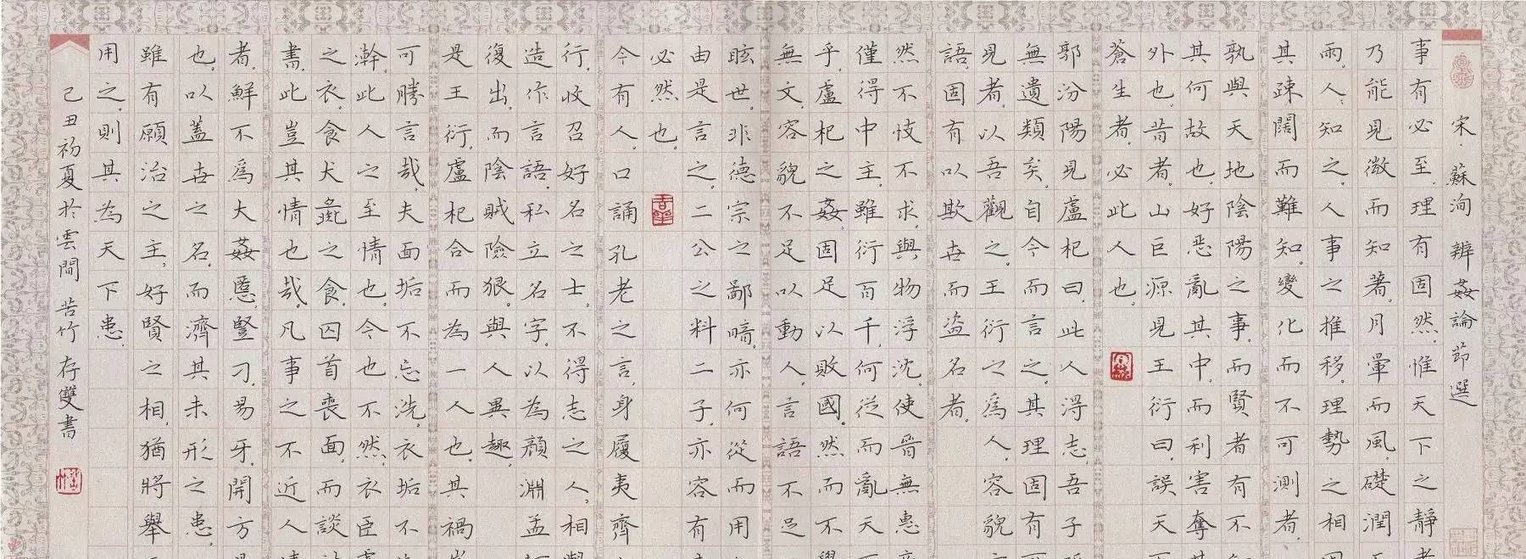 宋·蘇洵 辨姦論節選
事有必至,理有固然,惟天下之靜
乃能見微而知著,月暈而風,礎潤
雨,人、知之,人事之推移,理勢之相
其疎闊而難知,變化而不可測者,
孰與天地陰陽之事,而賢者有不
其何故也,好惡亂其中,而利害奪
外也,昔者,山巨源見王衍曰,誤天
蒼生者,必此人也,
郭汾陽見盧杞曰,此人得志,吾子
無遺類矣,自今而言之,其理固有
見者,以吾觀之,王衍之為人,容貌
語,固有以欺世而盜名者,
然不忮不求,與物浮沈,使晉無惠
僅得中主,雖衍百千,何從而亂天
乎,盧杞之姦,固足以敗國,然而不
無文,容貌不足以動人,言語不足
眩世,非德宗之鄙暗,亦何從而用
由是言之,二公之料二子,亦容有
必然也,
今有人,口誦孔老之言,身履夷齊
行,收召好名之士,不得志之人,相
造作言語,私立名字,以為顏淵孟
復出,而陰賊險狠,與人異趣,
是王衍,盧杞合而為一人也,其禍
可勝言哉,夫面垢不忘洗,衣垢不
澣,此人之至情也,今也不然,衣臣
之衣,食犬彘之食,囚首喪面,而談
書,此豈其情也哉,凡事之不近人
者,鮮不為大姦慝,豎刁,易牙,開方
也,以蓋世之名,而濟其未形之患,
雖有願治之主,好賢之相,猶將舉
用之,則其為天下患,
己丑初夏於雲間 苦竹 存雙書